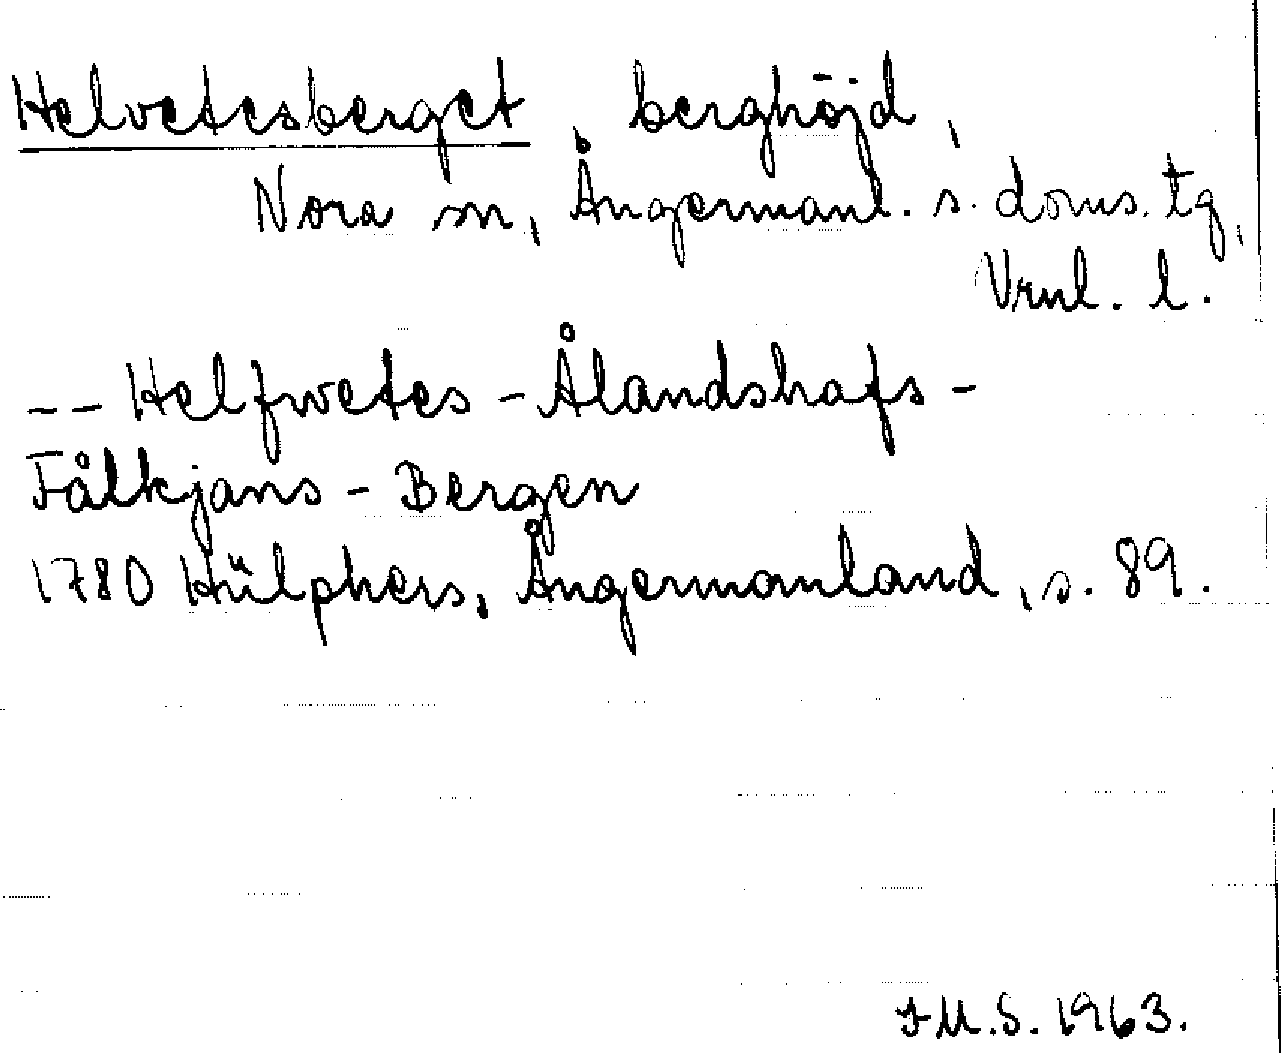 Helvetesberget, berghöjd,
Nora sn, Ångermanl. s. doms. tg,
Vrnl. l.
-- Helfwetes - Ålandshafs -
Fålkjans - Bergen
1780 Hülphers, Ångermanland, s. 89.
I M.S. 1963.